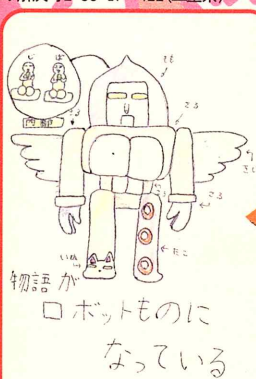 じ ば
内部
もも
さる
さる
さる
きじ
たこ
いぬ
物語が
ロボットものに
なっている